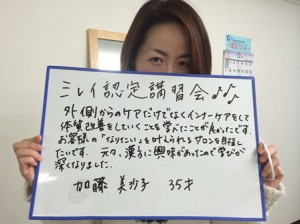 ミレイ認定講習会♪♪
外側からのケアだけでなくインナーケアをして
体質改善をしていくことを学べたことが良かったです。
お客様の「なりたい」を叶えられるサロンを目指し
たいです。元々、漢方に興味があったので学びが
深くなりました。
加藤 美沙子 35才